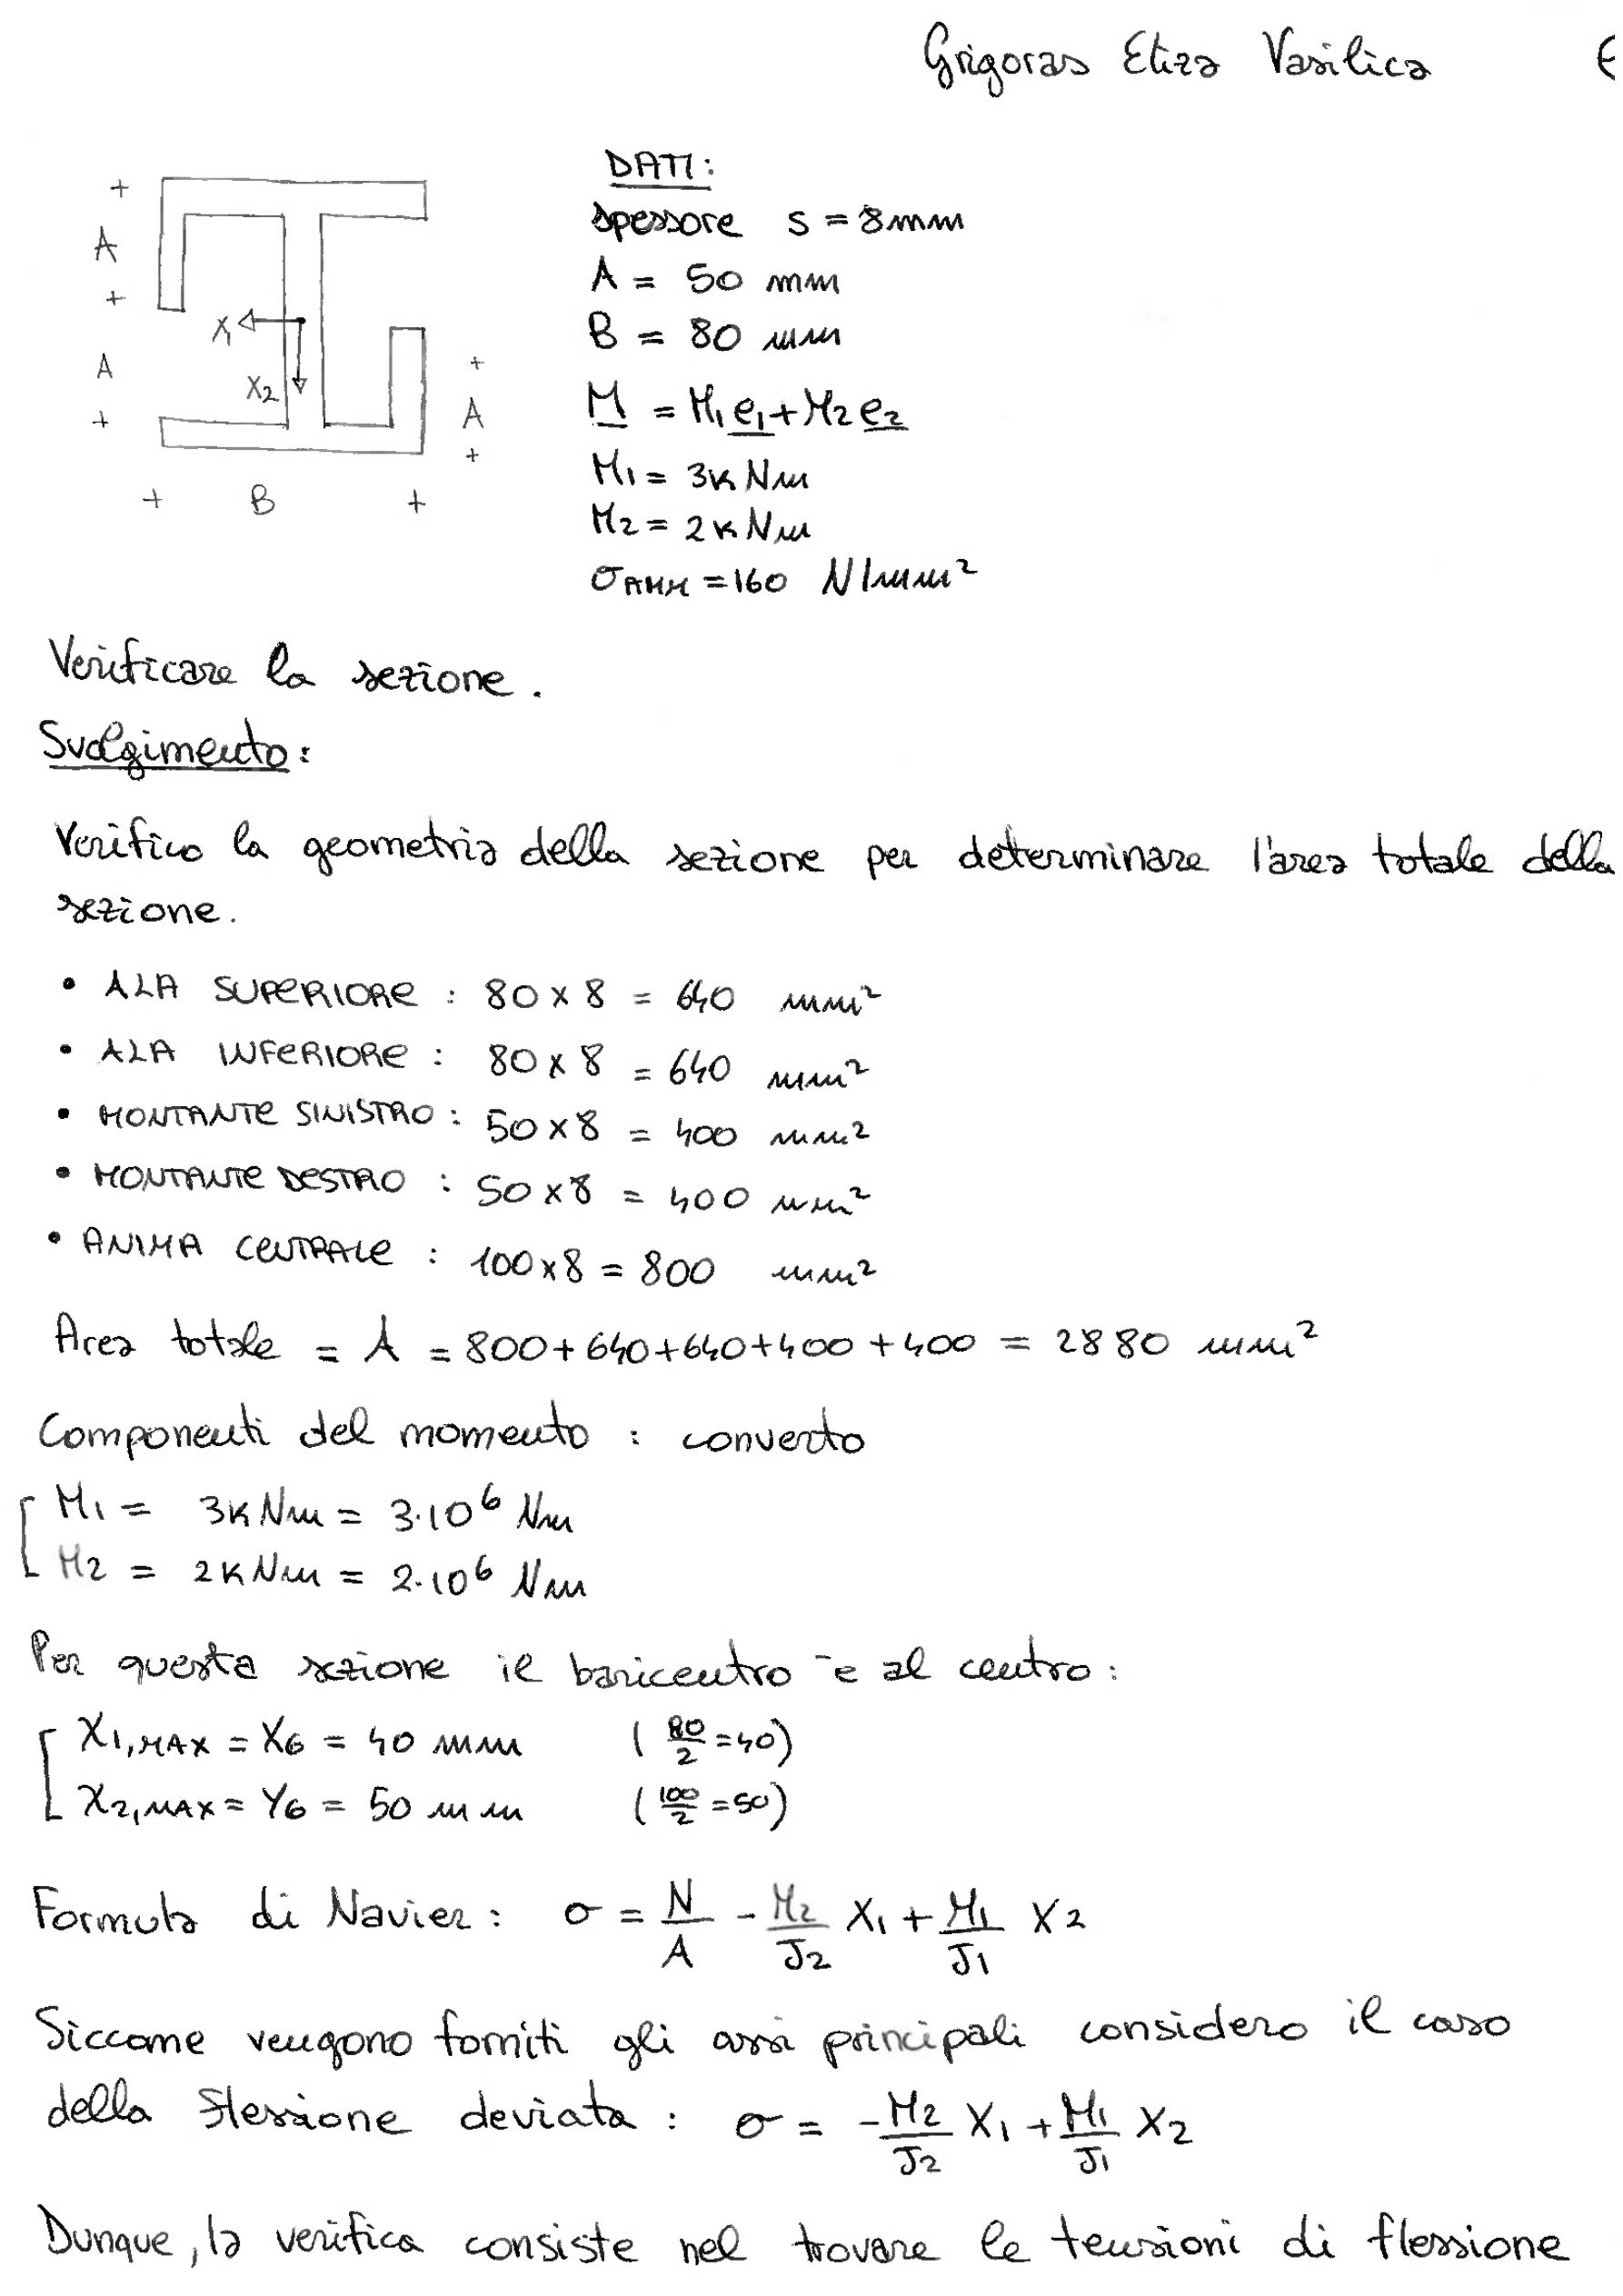 Grigoras Eliza Vasilica
DATI:
spessore s = 8mm
A = 50 mm
B = 80 mm
M = M1 e1 + M2 e2
M1 = 3kNm
M2 = 2kNm
σAMM = 160 N/mm²
+
A
+
A
+
X1
X2
+
A
+
+ B +
Verificare la sezione.
Svolgimento:
Verifico la geometria della sezione per determinare l'area totale della
sezione.
• ALA SUPERIORE : 80 x 8 = 640 mm²
• ALA INFERIORE : 80 x 8 = 640 mm²
• MONTANTE SINISTRO : 50 x 8 = 400 mm²
• MONTANTE DESTRO : 50 x 8 = 400 mm²
• ANIMA CENTRALE : 100 x 8 = 800 mm²
Area totale = A = 800 + 640 + 640 + 400 + 400 = 2880 mm²
Componenti del momento : converto
M1 = 3kNm = 3·10⁶ Nm
M2 = 2kNm = 2·10⁶ Nm
Per questa sezione il baricentro è al centro :
X1,MAX = XG = 40 mm (80/2 = 40)
X2,MAX = YG = 50 mm (100/2 = 50)
Formula di Navier : σ = N/A - M2/J2 X1 + M1/J1 X2
Siccome vengono forniti gli assi principali considero il caso
della flessione deviata : σ = -M2/J2 X1 + M1/J1 X2
Dunque, la verifica consiste nel trovare le tensioni di flessione